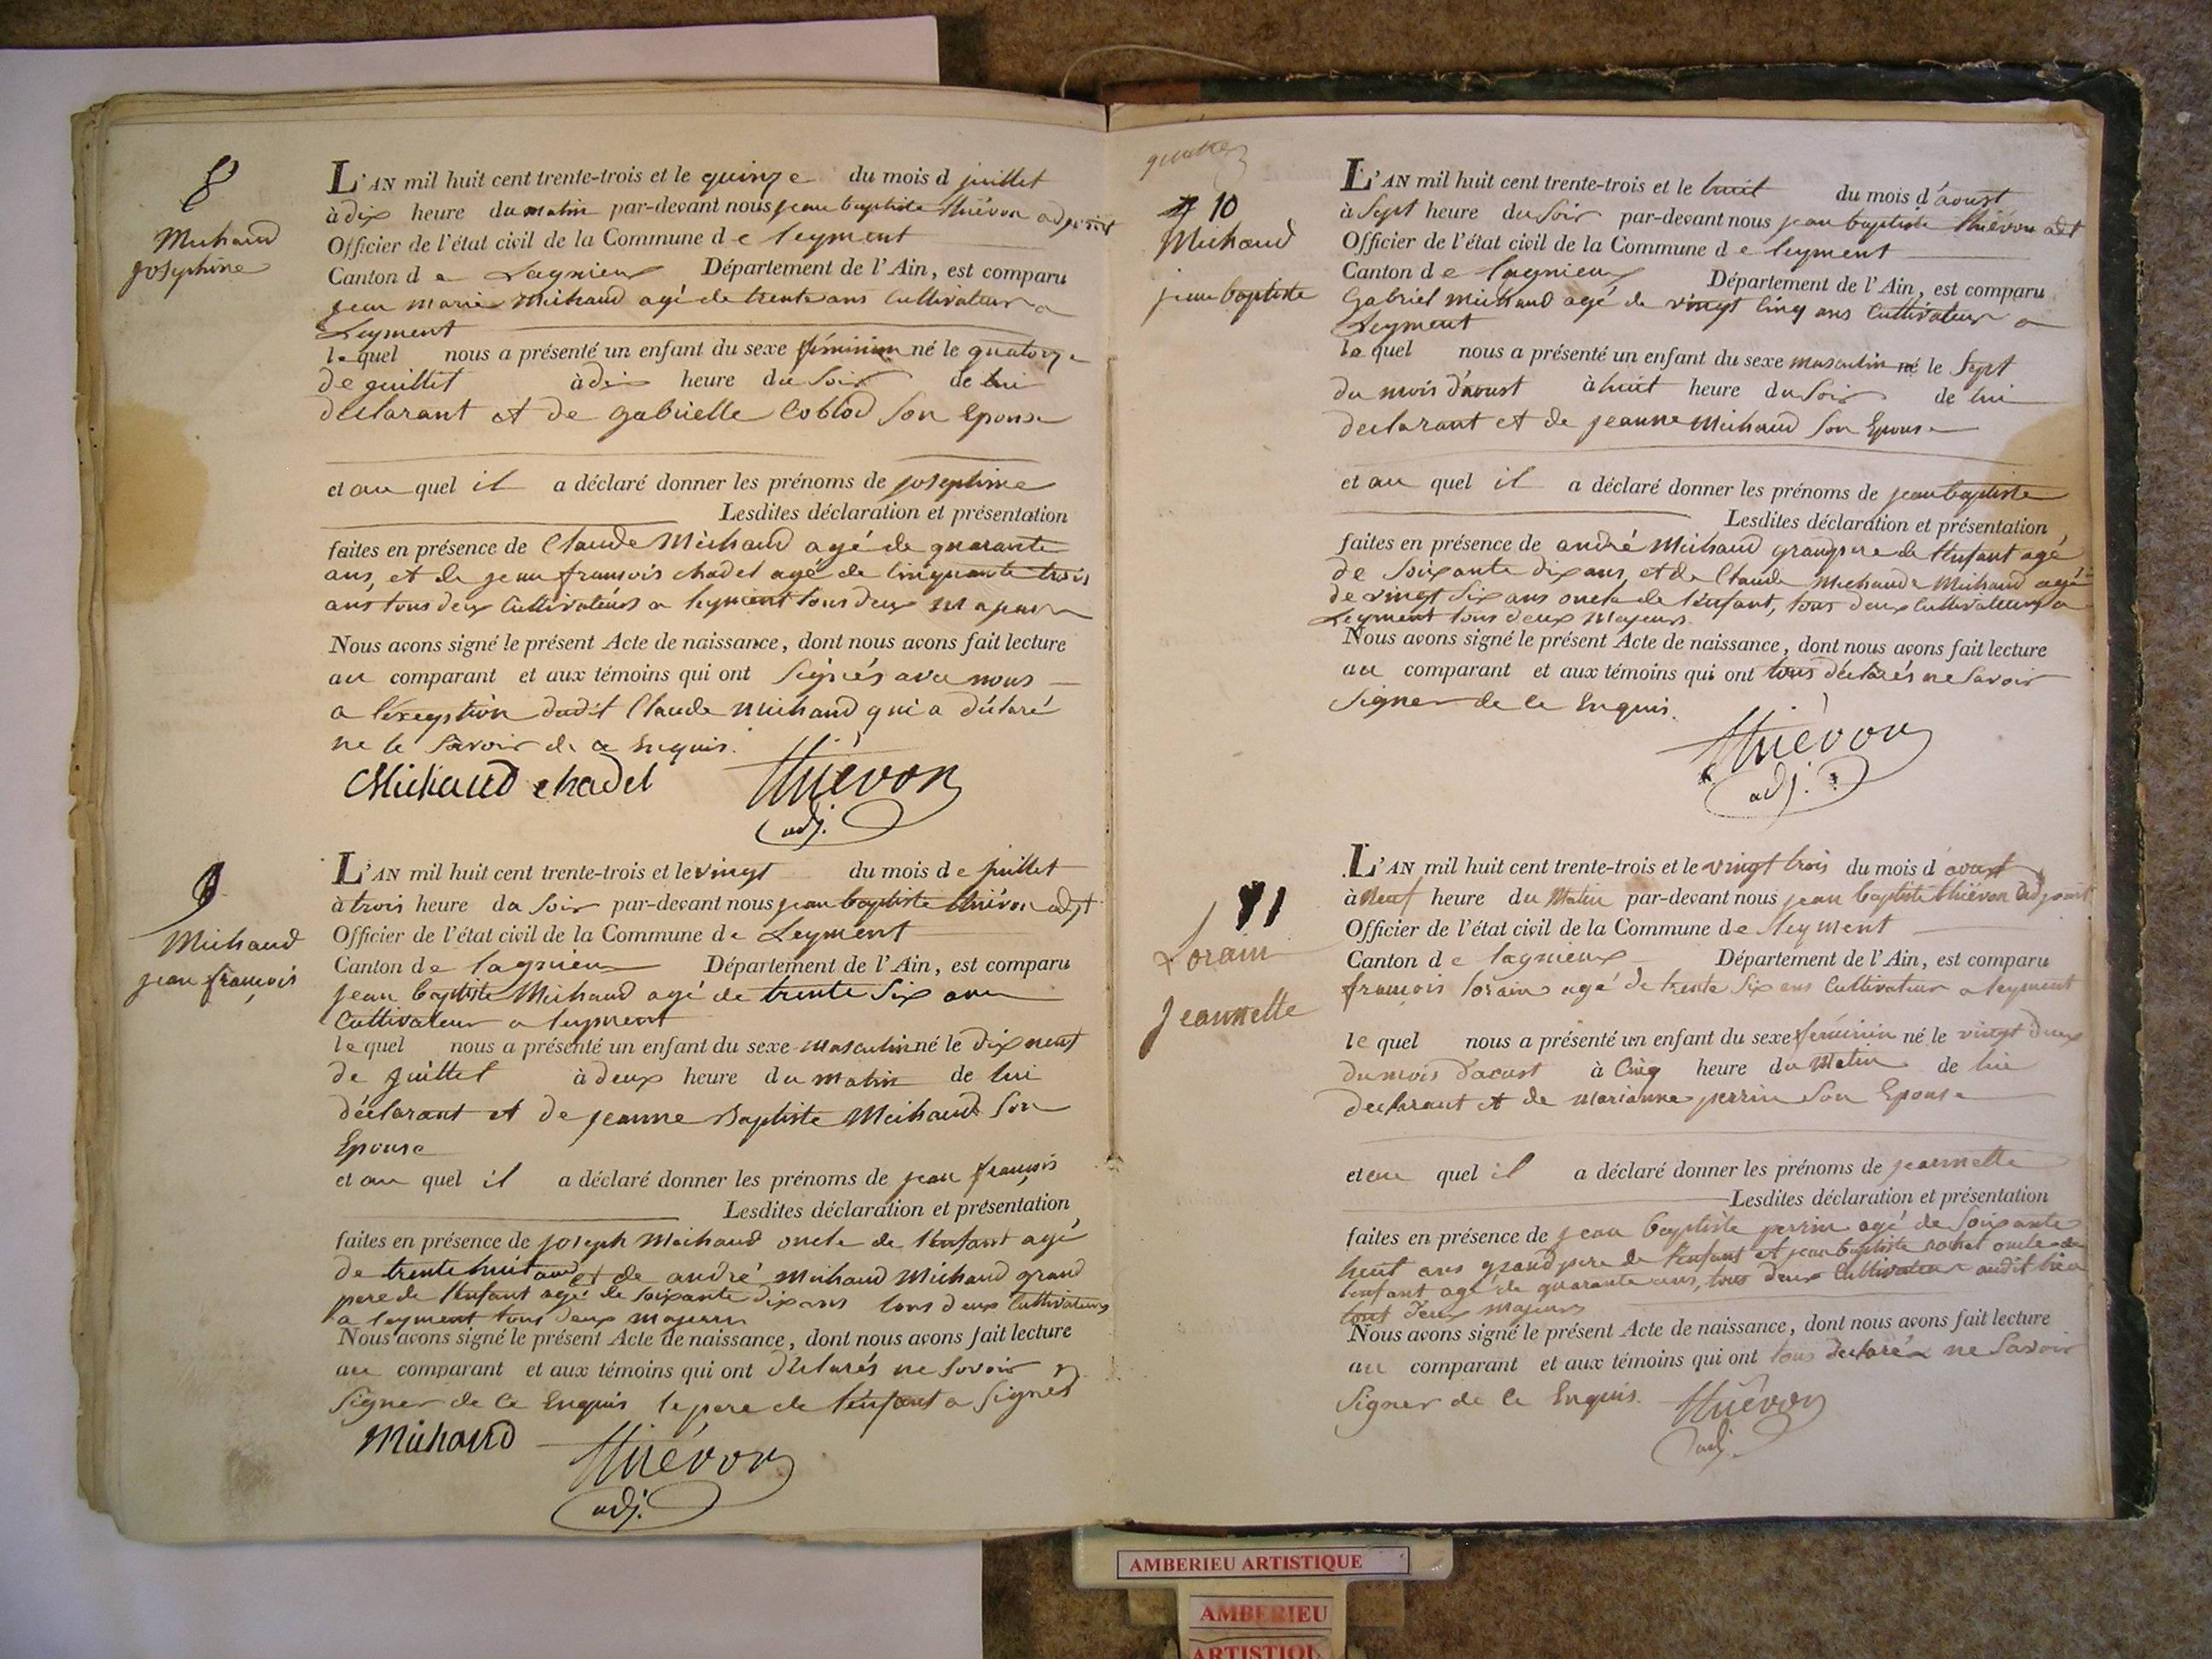 8
Michaud
josephine
L'AN mil huit cent trente-trois et le quinze du mois d juillet
à dix heure du matin par-devant nous jean baptiste thiévon adjoint
Officier de l'état civil de la Commune de leyment
Canton de Lagnieux Département de l'Ain, est comparu
jean marie Michaud agé de trente ans Cultivateur a
Leyment
lequel nous a présenté un enfant du sexe féminin né le quatorze
de juillet à dix heure du soir de lui
déclarant et de gabrielle Coblod son Epouse
et au quel il a déclaré donner les prénoms de josephine
Lesdites déclaration et présentation
faites en présence de Claude Michaud agé de quarante
ans, et de jean francois chadel agé de Cinquante trois
ans tous deux Cultivateurs a leyment tous deux Majeurs
Nous avons signé le présent Acte de naissance, dont nous avons fait lecture
au comparant et aux témoins qui ont signés avec nous
a l'éxeption dudit Claude Michaud qui a déclaré
ne le savoir de ce Enquis.
Michaud chadel thiévon
adj.
9
Michaud
jean françois
L'AN mil huit cent trente-trois et le vingt du mois de juillet
à trois heure du soir par-devant nous jean baptiste thiévon adjt
Officier de l'état civil de la Commune de Leyment
Canton de lagnieux Département de l'Ain, est comparu
jean baptiste Michaud agé de trente six ans
Cultivateur a leyment
lequel nous a présenté un enfant du sexe masculin né le dix neuf
de juillet à deux heure du matin de lui
déclarant et de jeanne Baptiste Michaud son
Epouse
et au quel il a déclaré donner les prénoms de jean françois
Lesdites déclaration et présentation
faites en présence de joseph Michaud oncle de l'enfant agé
de trente huit ans et de andré Michaud Michaud grand
pere de l'enfant agé de soixante dix ans tous deux Cultivateurs
a leyment tous deux majeurs
Nous avons signé le présent Acte de naissance, dont nous avons fait lecture
au comparant et aux témoins qui ont déclarés ne savoir
signer de ce Enquis le pere de l'enfant a signés
Michaud thiévon
adj.
quatre
10
Michaud
jean baptiste
L'AN mil huit cent trente-trois et le huit du mois d'aoust
à sept heure du soir par-devant nous jean baptiste thiévon adt
Officier de l'état civil de la Commune de leyment
Canton de lagnieux Département de l'Ain, est comparu
Gabriel Michaud agé de vingt Cinq ans Cultivateur a
Leyment
lequel nous a présenté un enfant du sexe masculin né le sept
du mois d'aoust à huit heure du soir de lui
declarant et de jeanne Michaud son Epouse
et au quel il a déclaré donner les prénoms de jean baptiste
Lesdites déclaration et présentation
faites en présence de andré Michaud grandpere de l'enfant agé
de soixante dix ans, et de Claude Michaud Michaud agé
de vingt six ans oncle de l'enfant, tous deux Cultivateurs a
Leyment tous deux Majeurs.
Nous avons signé le présent Acte de naissance, dont nous avons fait lecture
au comparant et aux témoins qui ont tous déclarés ne savoir
signer de ce Enquis.
thiévon
adj.
11
Lorain
Jeannette
L'AN mil huit cent trente-trois et le vingt trois du mois d'aoust
à neuf heure du Matin par-devant nous jean baptiste thiévon adjoint
Officier de l'état civil de la Commune de leyment
Canton de lagnieux Département de l'Ain, est comparu
françois lorain agé de trente six ans Cultivateur a leyment
lequel nous a présenté un enfant du sexe féminin né le vingt deux
du mois d'aoust à Cinq heure du Matin de lui
declarant et de marianne perrin son Epouse
et au quel il a déclaré donner les prénoms de jeannette
Lesdites déclaration et présentation
faites en présence de jean baptiste perrin agé de soixante
huit ans grand pere de l'enfant et jean baptiste oncle de
l'enfant agé de quarante ans, tous deux Cultivateur audit lieu
tous deux majeurs
Nous avons signé le présent Acte de naissance, dont nous avons fait lecture
au comparant et aux témoins qui ont tous declarés ne savoir
signer de ce Enquis. thiévon
adj.
AMBERIEU ARTISTIQUE
AMBERIEU
ARTISTIQU